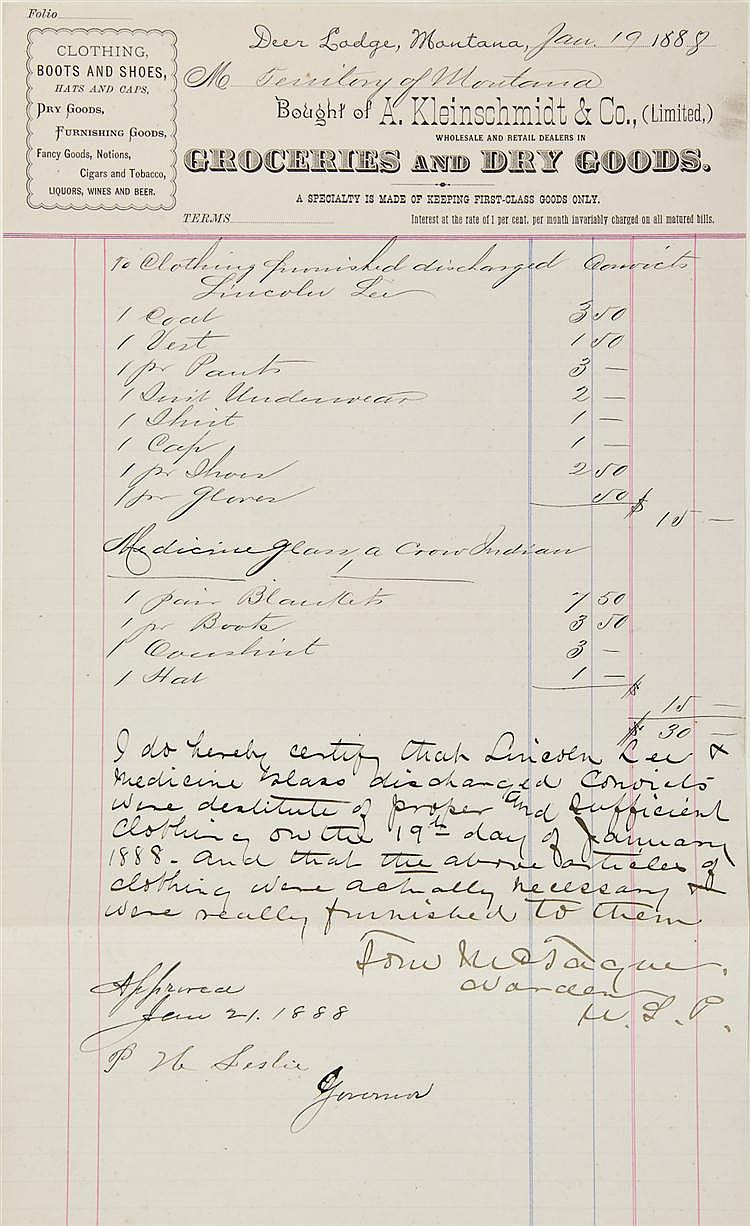 Folio
CLOTHING,
BOOTS AND SHOES,
HATS AND CAPS,
DRY GOODS,
FURNISHING GOODS,
Fancy Goods, Notions,
Cigars and Tobacco,
LIQUORS, WINES AND BEER.
Deer Lodge, Montana, Jan. 19 1888
M Territory of Montana
Bought of A. Kleinschmidt & Co., (Limited,)
WHOLESALE AND RETAIL DEALERS IN
GROCERIES AND DRY GOODS.
A SPECIALTY IS MADE OF KEEPING FIRST-CLASS GOODS ONLY.
TERMS
Interest at the rate of 1 per cent. per month invariably charged on all matured bills.
To Clothing furnished discharged Convicts
Lincoln Lee
1 Coat 3 50
1 Vest 1 50
1 pr Pants 3 —
1 Suit Underwear 2 —
1 Shirt 1 —
1 Cap 1 —
1 pr Shoes 2 50
1 pr Gloves 50
$ 15 —
Medicine Glass, a Crow Indian
1 pair Blankets 7 50
1 pr Boots 3 50
1 Overshirt 3 —
1 Hat 1 —
$ 15 —
$ 30 —
I do hereby certify that Lincoln Lee &
Medicine Glass discharged Convicts
were destitute of proper and sufficient
clothing on the 19th day of January
1888 - and that the above articles of
clothing were actually necessary &
were really furnished to them
Tom McTague.
Warden
U. S. P.
Approved
Jan 21. 1888
P H Leslie
Governor